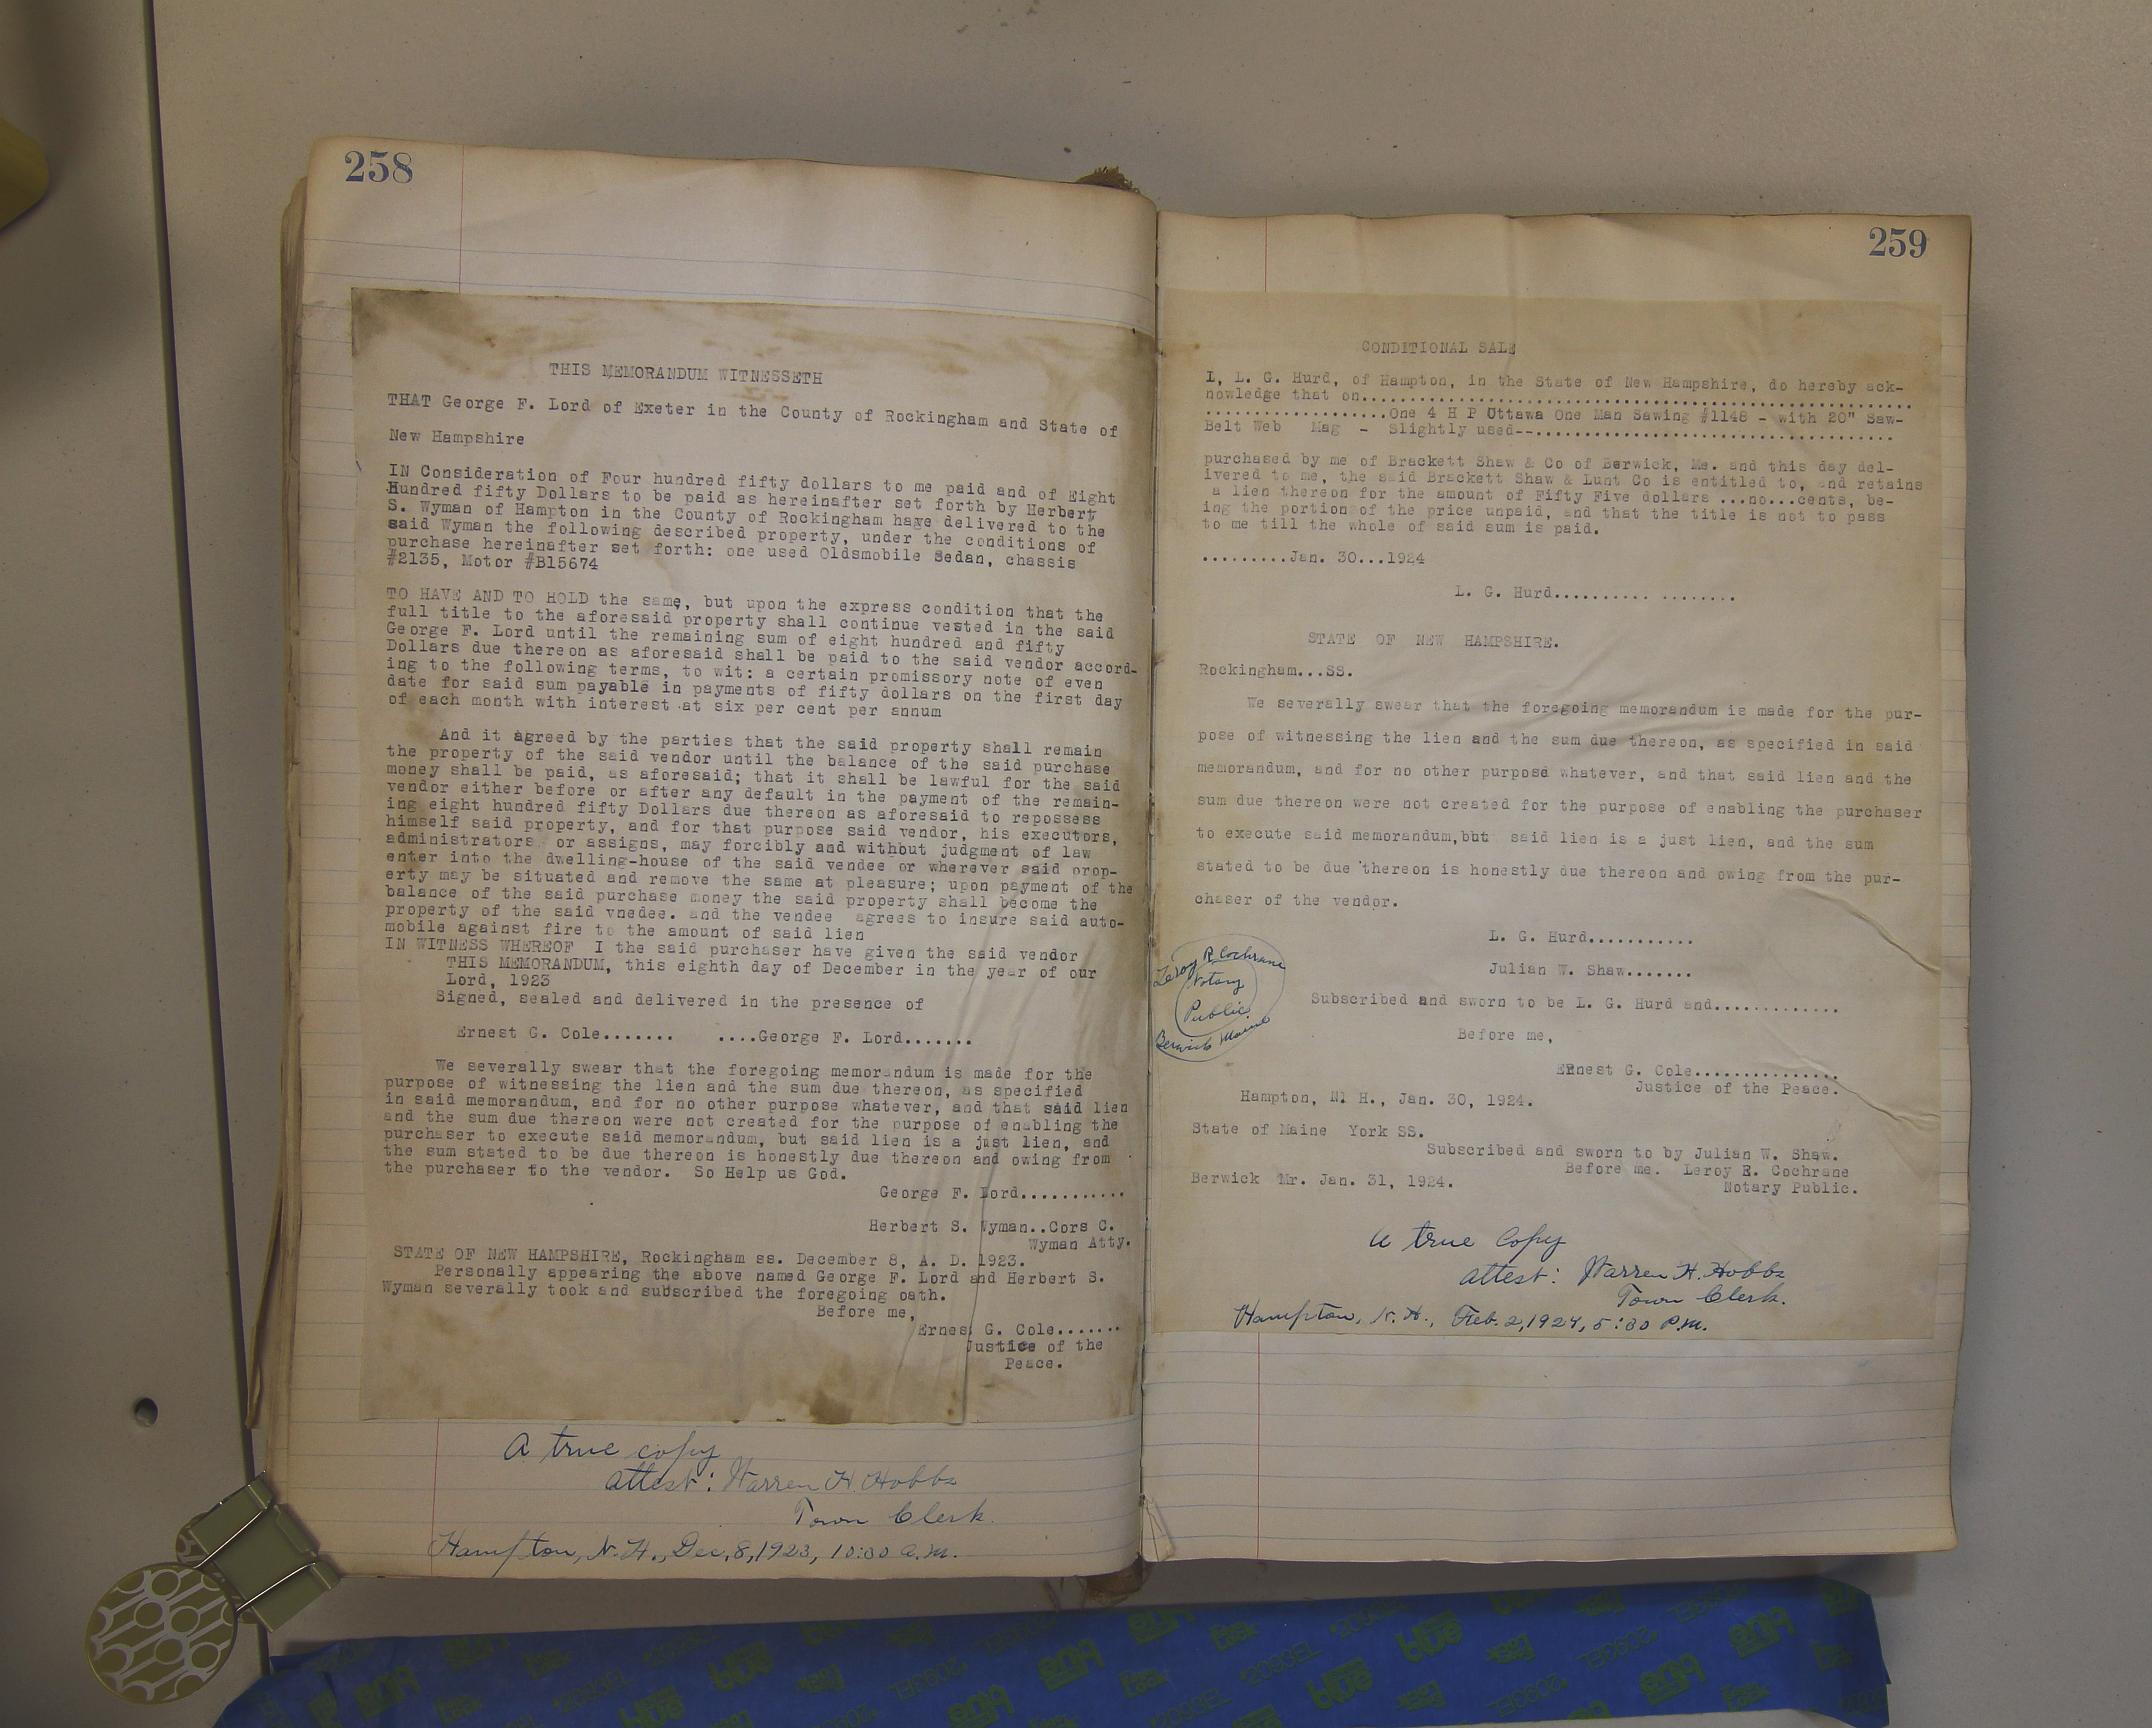 258
THIS MEMORANDUM WITNESSETH
THAT George F. Lord of Exeter in the County of Rockingham and State of
New Hampshire
IN Consideration of Four hundred fifty dollars to me paid and of Eight
Hundred fifty Dollars to be paid as hereinafter set forth by Herbert
S. Wyman of Hampton in the County of Rockingham have delivered to the
said Wyman the following described property, under the conditions of
purchase hereinafter set forth: one used Oldsmobile Sedan, chassis
#2135, Motor #B15674
TO HAVE AND TO HOLD the same, but upon the express condition that the
full title to the aforesaid property shall continue vested in the said
George F. Lord until the remaining sum of eight hundred and fifty
Dollars due thereon as aforesaid shall be paid to the said vendor accord-
ing to the following terms, to wit: a certain promissory note of even
date for said sum payable in payments of fifty dollars on the first day
of each month with interest at six per cent per annum
And it agreed by the parties that the said property shall remain
the property of the said vendor until the balance of the said purchase
money shall be paid, as aforesaid; that it shall be lawful for the said
vendor either before or after any default in the payment of the remain-
ing eight hundred fifty Dollars due thereon as aforesaid to repossess
himself said property, and for that purpose said vendor, his executors,
administrators or assigns, may forcibly and without judgment of law
enter into the dwelling-house of the said vendee or wherever said prop-
erty may be situated and remove the same at pleasure; upon payment of the
balance of the said purchase money the said property shall become the
property of the said vnedee. and the vendee agrees to insure said auto-
mobile against fire to the amount of said lien
IN WITNESS WHEREOF I the said purchaser have given the said vendor
THIS MEMORANDUM, this eighth day of December in the year of our
Lord, 1923
Signed, sealed and delivered in the presence of
Ernest G. Cole....... ....George F. Lord.......
We severally swear that the foregoing memorandum is made for the
purpose of witnessing the lien and the sum due thereon, as specified
in said memorandum, and for no other purpose whatever, and that said lien
and the sum due thereon were not created for the purpose of enabling the
purchaser to execute said memorandum, but said lien is a just lien, and
the sum stated to be due thereon is honestly due thereon and owing from
the purchaser to the vendor. So Help us God.
George F. Lord...........
Herbert S. Wyman..Cors C.
Wyman Atty.
STATE OF NEW HAMPSHIRE, Rockingham ss. December 8, A. D. 1923.
Personally appearing the above named George F. Lord and Herbert S.
Wyman severally took and subscribed the foregoing oath.
Before me,
Ernest G. Cole.......
Justice of the
Peace.
A true copy
attest: Warren H. Hobbs
Town Clerk.
Hampton, N. H., Dec. 8, 1923, 10:30 a.m.
259
CONDITIONAL SALE
I, L. G. Hurd, of Hampton, in the State of New Hampshire, do hereby ack-
nowledge that on.......................................................
..................One 4 H P Ottawa One Man Sawing #1148 - with 20" Saw-
Belt Web Mag - Slightly used--....................................
purchased by me of Brackett Shaw & Co of Berwick, Me. and this day del-
ivered to me, the said Brackett Shaw & Lunt Co is entitled to, and retains
a lien thereon for the amount of Fifty Five dollars ...no...cents, be-
ing the portion of the price unpaid, and that the title is not to pass
to me till the whole of said sum is paid.
.........Jan. 30...1924
L. G. Hurd.......... ........
STATE OF NEW HAMPSHIRE.
Rockingham...SS.
We severally swear that the foregoing memorandum is made for the pur-
pose of witnessing the lien and the sum due thereon, as specified in said
memorandum, and for no other purpose whatever, and that said lien and the
sum due thereon were not created for the purpose of enabling the purchaser
to execute said memorandum,but said lien is a just lien, and the sum
stated to be due thereon is honestly due thereon and owing from the pur-
chaser of the vendor.
L. G. Hurd...........
Julian W. Shaw.......
Leroy R Cochrane
Notary
Public
Berwick Maine
Subscribed and sworn to be L. G. Hurd and.............
Before me,
Ernest G. Cole...............
Justice of the Peace.
Hampton, N. H., Jan. 30, 1924.
State of Maine York SS.
Subscribed and sworn to by Julian W. Shaw.
Before me. Leroy R. Cochrane
Berwick Mr. Jan. 31, 1924.
Notary Public.
A true Copy
attest: Warren H. Hobbs
Town Clerk.
Hampton, N. H., Feb. 2, 1924, 5:30 P.M.